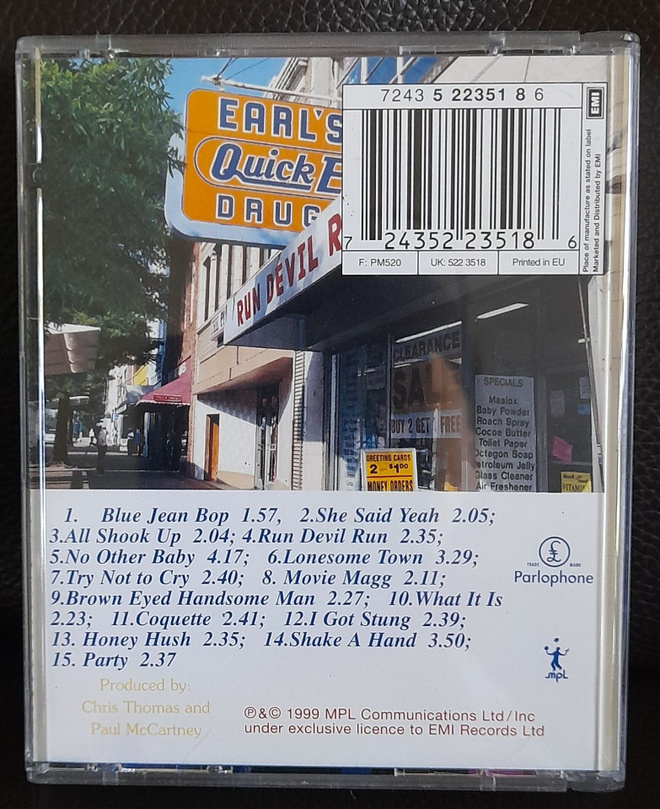 EARL'S
Quick E
DRUG
RUN DEVIL R
7243 5 22351 8 6
EMI
7 24352 23518 6
F: PM520
UK: 522 3518
Printed in EU
Place of manufacture as stated on label
Marketed and Distributed by EMI
CLEARANCE
SALE
BUY 2 GET 1 FREE
SPECIALS
Maalox
Baby Powder
Roach Spray
Cocoa Butter
Toilet Paper
Octagon Soap
Petroleum Jelly
Glass Cleaner
Air Freshener
GREETING CARDS
2 $100
MONEY ORDERS
VITAMIN
1. Blue Jean Bop 1.57, 2.She Said Yeah 2.05;
3.All Shook Up 2.04; 4.Run Devil Run 2.35;
5.No Other Baby 4.17; 6.Lonesome Town 3.29;
7.Try Not to Cry 2.40; 8. Movie Magg 2.11;
9.Brown Eyed Handsome Man 2.27; 10.What It Is
2.23; 11.Coquette 2.41; 12.I Got Stung 2.39;
13. Honey Hush 2.35; 14.Shake A Hand 3.50;
15. Party 2.37
£
TRADE MARK
Parlophone
mpL
Produced by:
Chris Thomas and
Paul McCartney
℗&© 1999 MPL Communications Ltd/Inc
under exclusive licence to EMI Records Ltd